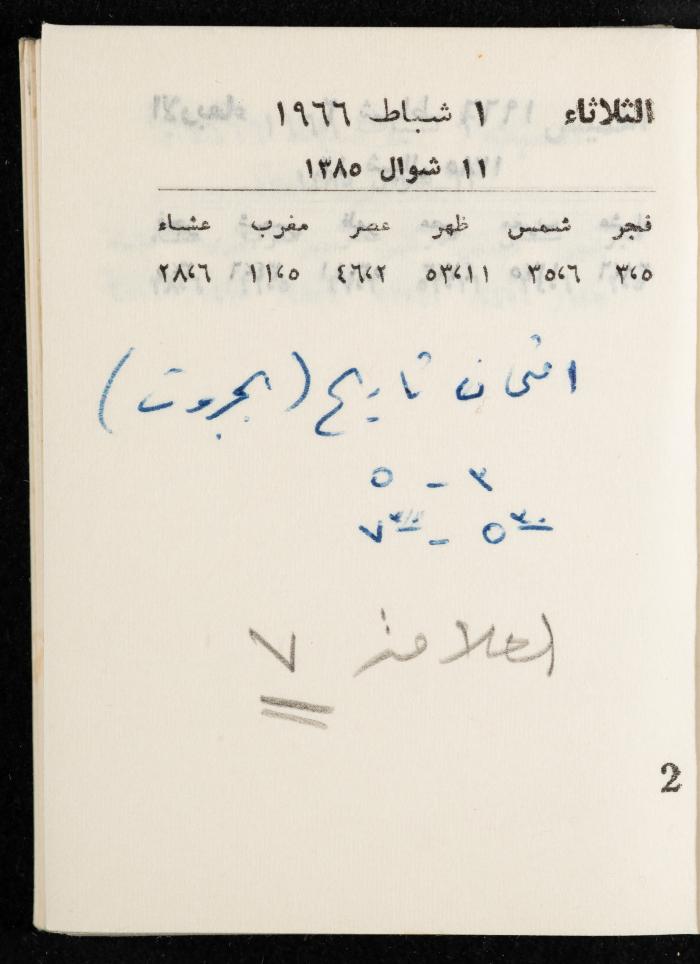 الثلاثاء ١ شباط ١٩٦٦
١١ شوال ١٣٨٥
فجر شمس ظهر عصر مغرب عشاء
٣،٥ ٣٥،٦ ٥٣،١١ ٤٦،٢ ١١،٥ ٢٨،٦
امتحان تاريخ (بجروت)
٣ - ٥
٥٣٠ - ٧٣٠
العلامة ٧
2